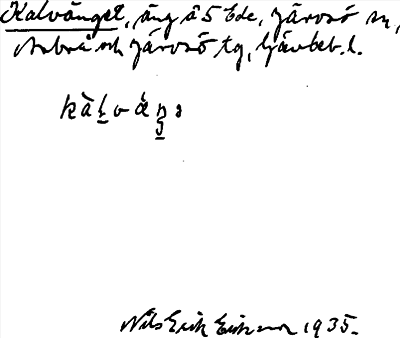 Kalvänget, äng å 5 Ede, Järvsö sn,
Arbrå och Järvsö tg, Gävleb. l.
Nils Erik Eriksson 1935.